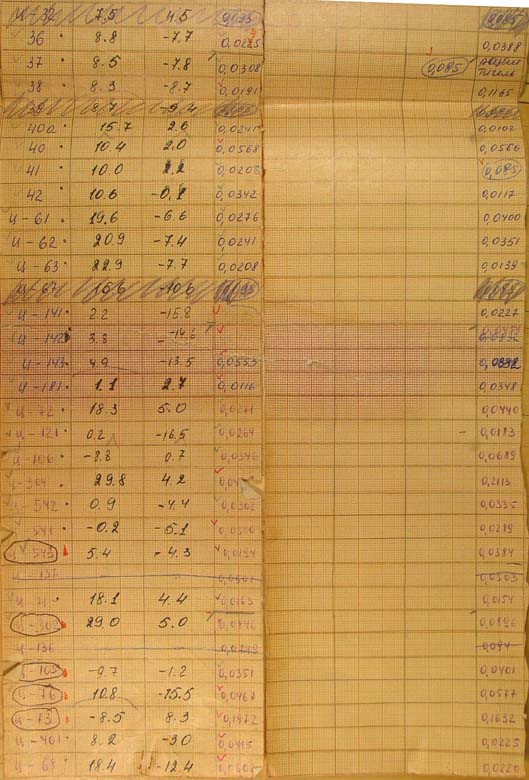 36 8.8 -7.7 0,0285 0,0388
37 8.5 -7.8 0,0308 0,085
38 8.3 -8.7 0,0191 0,1165
39 -9.4
40а 15.7 2.6 0,0241 0,0102
40 10.4 2.0 0,0568 0,0566
41 10.0 2.2 0,0206 0,085
42 10.6 -0.1 0,0342 0,0117
Ц-61 19.6 -6.6 0,0276 0,0400
Ц-62 20.9 -7.4 0,0241 0,0351
Ц-63 22.9 -7.7 0,0208 0,0139
-10.6
Ц-141 2.2 -15.8 0,0227
Ц-142 3.3 -14.6
Ц-143 4.9 -13.5 0,0553 0,0392
Ц-181 1.1 2.7 0,0116 0,0348
Ц-72 18.3 5.0 0,0271 0,0440
Ц-121 0.2 -16.5 0,0264 0,0183
Ц-106 -8.8 0.7 0,0346 0,0689
29.8 4.2 0,2113
Ц-542 0.9 -4.4 0,0302 0,0335
541 -0.2 -5.1 0,0500 0,0289
Ц-543 5.4 -4.3 0,0134 0,0384
Ц-137 0,0503
Ц-71 18.1 4.4 0,0163 0,0154
Ц-302 29.0 5.0 0,0846 0,0896
Ц-136 0,0249 0,094
Ц-105 -9.7 -1.2 0,0351 0,0401
Ц-76 10.8 -15.5 0,0467 0,0577
Ц-73 -8.5 8.3 0,1972 0,1632
Ц-401 8.2 -3.0 0,0415 0,0225
Ц-69 18.4 -12.4 0,0220